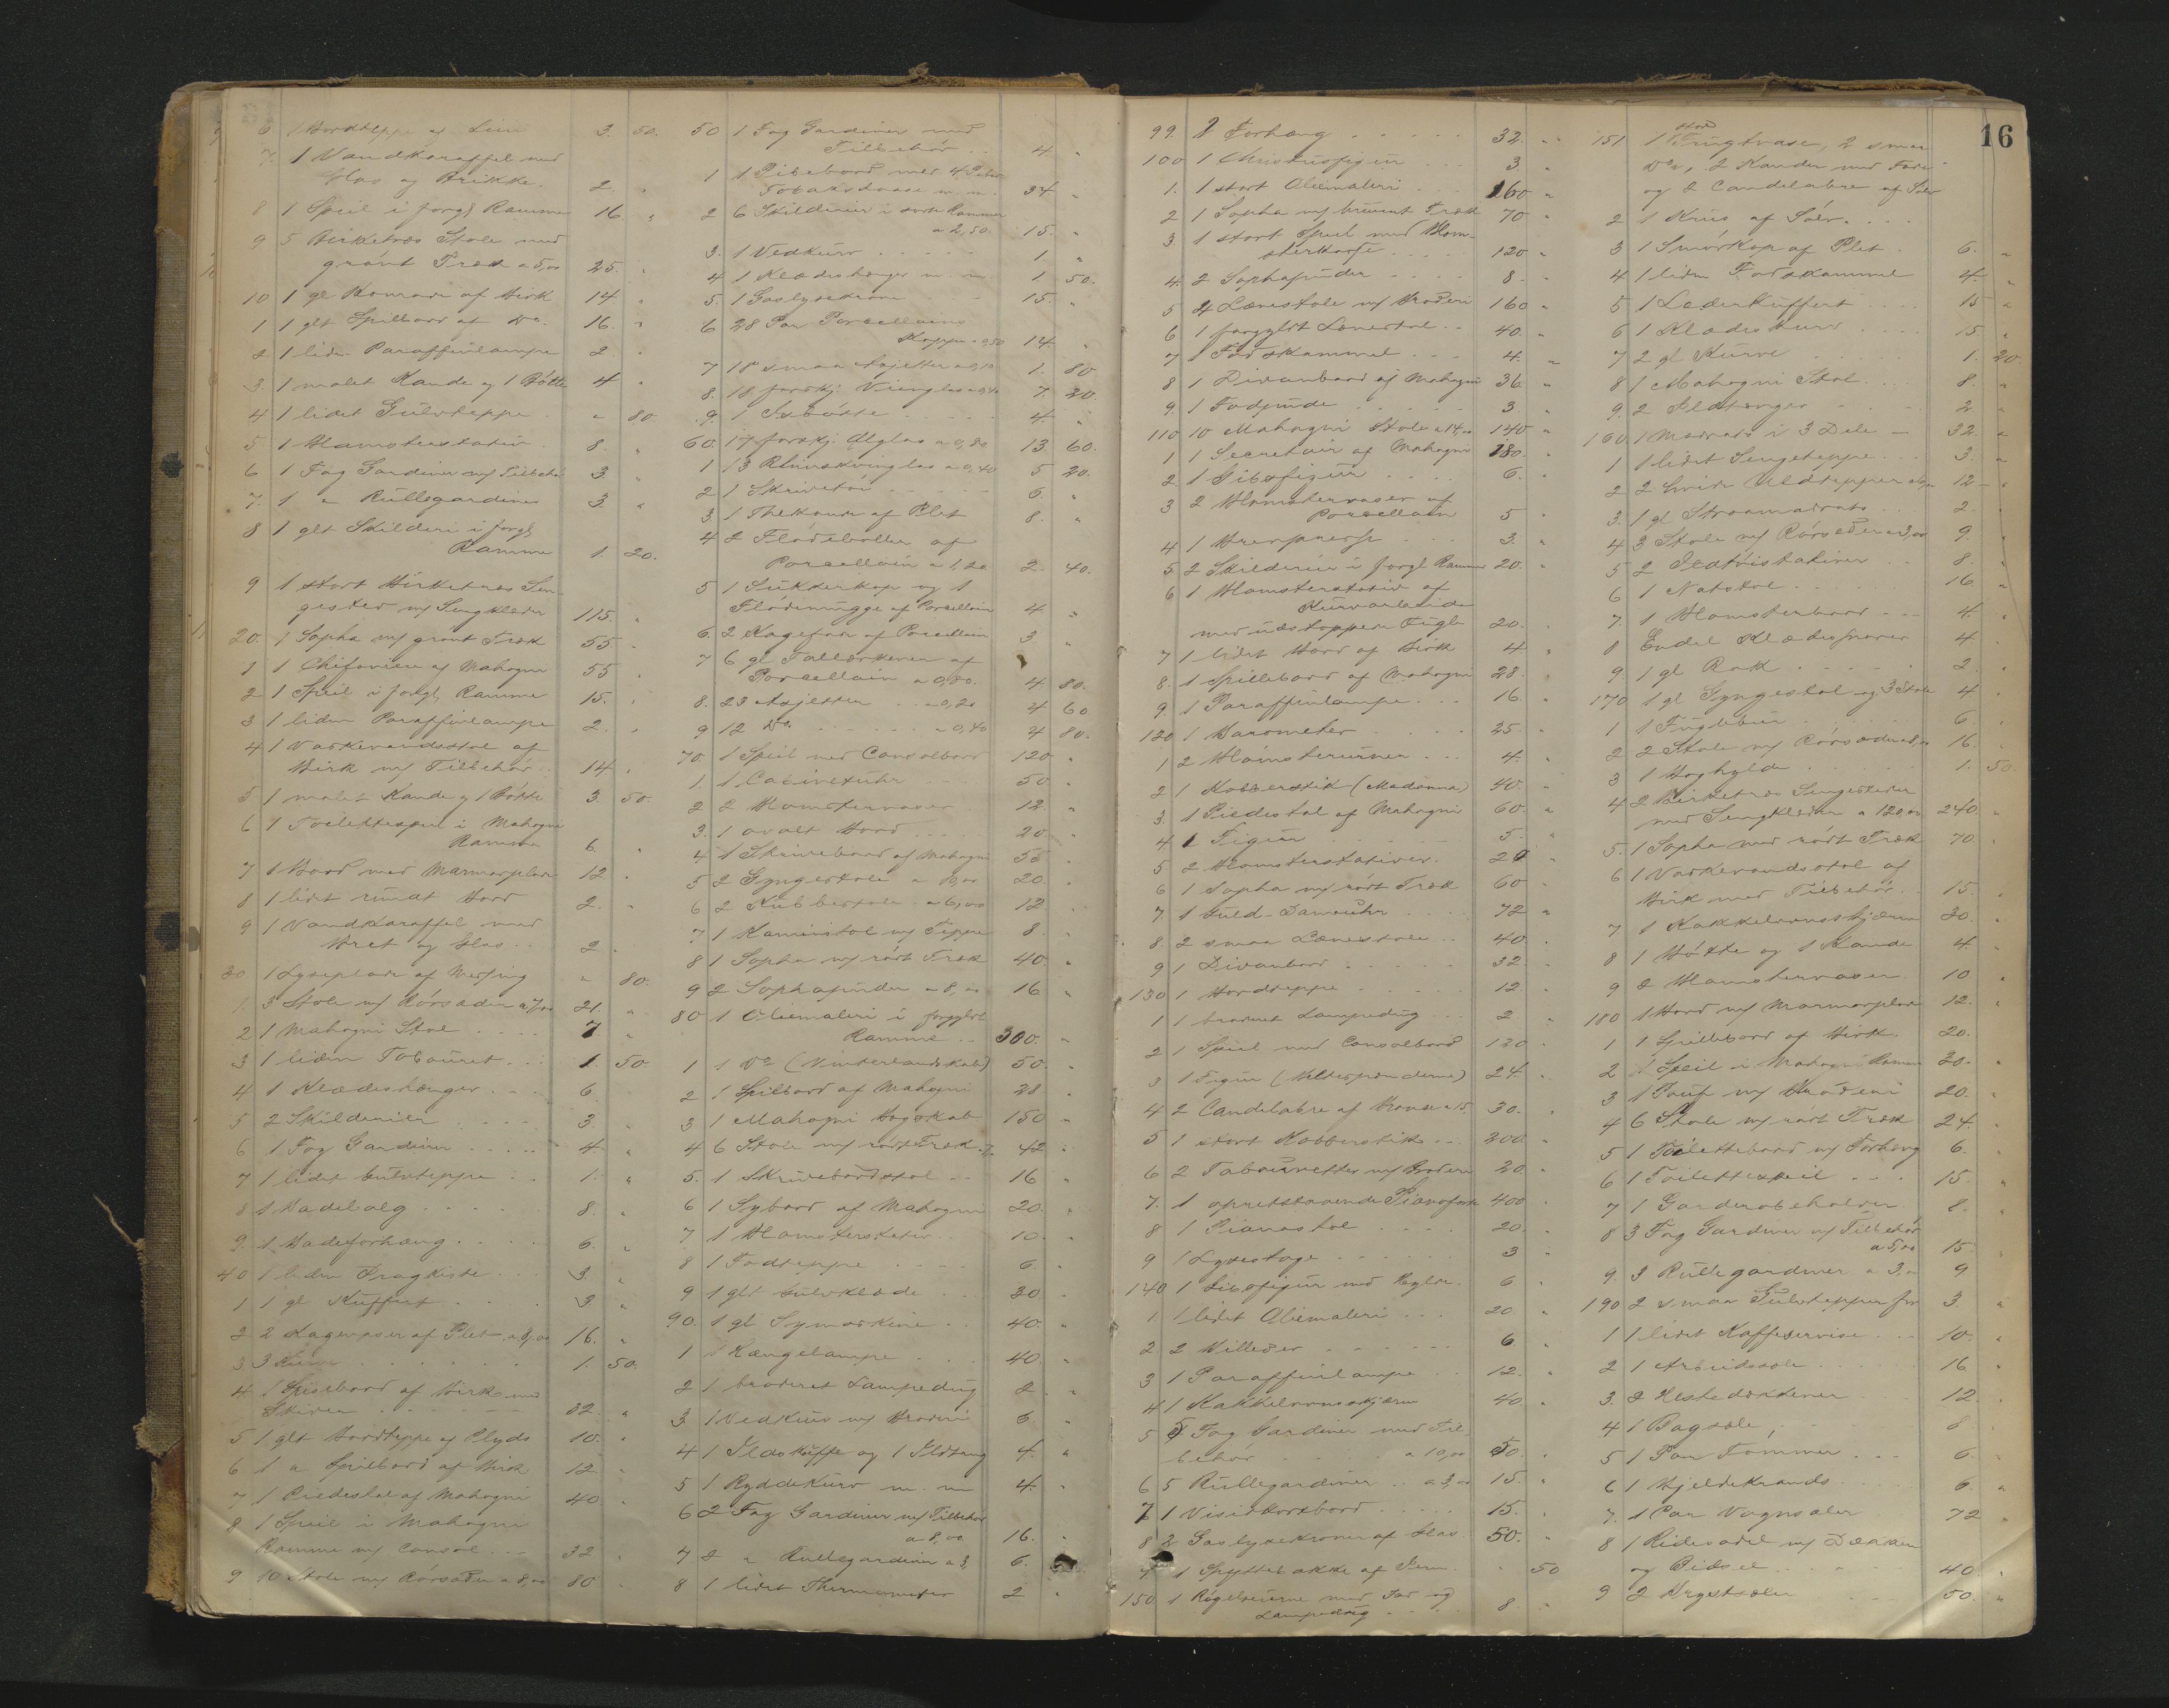 6 1 Bordteppe af Liin 3. 50.
7. 1 Vandkaraffel med
Glas og Brikke. 2. "
8 1 Speil i forgl Ramme 16 "
9 5 Birketræs Stole med
grønt Træk a 5,00 25. "
10 1 gl Komode af Birk 14 "
1 1 glt Spillbord af Do. 16. "
2 1 liden Paraffinlampe 2. "
3. 1 malet Kande og 1 Bøtte 4 "
4 1 lidet Gulvteppe " 80
5. 1 Blomsterstativ 8. "
6 1 Fag Gardiner m/ Tilbehør 3 "
7. 1 " Rullegardiner 3 "
8 1 glt Skilderi i forgl
Ramme 1 20.
9 1 stort Birketræs Sen-
gested m/ Sengklæder 115. "
20. 1 Sopha m/ grønt Træk 55 "
1 1 Chifoniere af Mahogni 55 "
2 1 Speil i forgl. Ramme 15. "
3 1 liden Paraffinlampe 2. "
4 1 Vaskevandsstol af
Birk m/ Tilbehør 14 "
5 1 malet Kande og 1 Bøtte 3. 50.
6 1 Toilettespeil i Mahogni
Ramme 6. "
7 1 Bord med Marmorplade 12 "
8 1 lidet rundt Bord 2. "
9 1 Vandkaraffel med
Bret og Glas 2 "
30 1 Lyseplade af Messing " 80.
1. 3 Stole m/ Rørsæder a 7,00 21. "
2 1 Mahogni Stol 7 "
3 1 liden Tabouret 1. 50
4 1 Klædeshænger 6.
5 2 Skilderier 3. "
6 1 Fag Gardiner 4. "
7 1 lidet Gulvteppe 1. "
8 1 Badebalg 8. "
9. 1 Badeforhæng 6. "
40 1 liden Dragkiste 3. "
1 1 gl Kuffert 3. "
2 2 Kagevaser af Plet a 8,00 16. "
3 3 Kurve 1. 50.
4. 1 Spisebord af Birk med
Skiver 32. "
5 1 glt Bordteppe af Plyds 10. "
6 1 " Spilbord af Birk 12. "
7 1 Piedestal af Mahogni 40. "
8 1 Speil i Mahogni
Ramme m/ Consol 32. "
9 10 Stole m/ Rørsæder a 8,00 80 "
50 1 Fag Gardiner med
Tilbehør 4 "
1 1 Pibebord med 4 Piber
Tobaksdaase m. m. 34 "
2 6 Skilderier i sorte Rammer
a 2,50. 15. "
3. 1 Vedkurv 1. "
4 1 Klædeshænger m. m 1. 50.
5. 1 Gaslysekrone 15. "
6 28 Par Porcellains
Kopper a 0,50 14. "
7 18 smaa Asjetter a 0,10 1. 80
8. 18 forskj. Vinglas a 0,40 7. 20.
9. 1 Isbøtte 4. "
60. 17 forskj. Ølglas a 0,80 13 60.
1 13 Rhinskvinglas a 0,40 5 20.
2 1 Skrivetøi 6. "
3. 1 Thekande af Plet 8. "
4 2 Flødeboller af
Porcellain a 1,20 2. 40.
5 1 Sukkerkop og 1
Flødemugge af Porcellain 4. "
6. 2 Kagefade af Porcellain 3 "
7 6 gl Tallerkener af
Porcellain a 0,80. 4 80.
8. 23 Asjetter a 0,20 4 60
9 12 Do. a 0,40 4 80.
70. 1 Speil med Consolbord 120 "
1. 1 Cabinetuhr 50 "
2 2 Blomstervaser 12. "
3. 1 ovalt Bord 20. "
4 1 Skrivebord af Mahogni 55 "
5 2 Gyngestole a 10,00 20. "
6 2 Kubbestole a 6,00 12 "
7 1 Kaminstol m/ Teppe 8. "
8 1 Sopha m/ rødt Træk 40. "
9 2 Sophapuder a 8,00 16 "
80 1 Oliemaleri i forgyldt
Ramme 300. "
1 1 Do (Vinterlandskab) 50. "
2 1 Spilbord af Mahogni 28 "
3 1 Mahogni Bogskab 150 "
4 6 Stole m/ rødt Træk a 7, 42 "
5. 1 Skrivebordsstol 16 "
6 1 Sybord af Mahogni 20. "
7 1 Blomsterstativ 10. "
8 1 Fodteppe 6. "
9 1 glt Gulvklæde 30 "
90. 1 gl Symaskine 40. "
1 1 Hængelampe 40. "
2 1 broderet Lampedug 2. "
3 1 Vedkurv m/ Broderi 6. "
4 1 Ildskuffe og 1 Ildtang 4. "
5 1 Ryddekurv m. m 4. "
6 2 Fag Gardiner m/ Tilbehør
a 8,00 16. "
7 2 " Rullegardiner a 3, 6.
8 1 lidet Thermometer 2 "
16
99. 2 Forhæng 32. "
100 1 Christusfigur 3 "
1. 1 stort Oliemaleri 160 "
2 1 Sopha m/ brunt Træk 70 "
3. 1 stort Speil med Blom-
sterkasse 120 "
4. 2 Sophapuder 8. "
5 4 Lænestole m/ Broderi 160 "
6 1 forgyldt Lænestol 40. "
7 1 Fodskammel 4. "
8 1 Divanbord af Mahogni 36. "
9. 1 Fodpude 3. "
110 10 Mahogni Stole a 14,00 140 "
1 1 Secretair af Mahogni 180. "
2. 1 Gibsfigur 6. "
3 2 Blomstervaser af
Porcellain 5 "
4 1 Brevpresse 3. "
5. 2 Skilderier i forgl Rammer 20. "
6 1 Blomsterstativ af
Kurvarbeide
med udstoppede Fugle 20. "
7 1 lidet Bord af Birk 4 "
8. 1 Spillebord af Mahogni 28. "
9. 1 Paraffinlampe 16. "
120 1 Barometer 25 "
1 2 Blomsterurner 4. "
2 1 Kobberstik (Madonna) 40. "
3. 1 Piedestal af Mahogni 60. "
4. 1 Figur 5. "
5 2 Blomsterstativer. 20 "
6 1 Sopha m/ rødt Træk 60 "
7 1 Guld-Dameuhr 72 "
8 2 smaa Lænestole 40. "
9 1 Divanbord 32. "
130 1 Bordteppe 12. "
1 1 broderet Lampedug 2 "
2 1 Speil med Consolbord 120 "
3 1 Figur (Beltespænderne) 24. "
4 2 Candelabre af Bronce a 15. 30. "
5 1 stort Kobberstik 200. "
6 2 Tabouretter m/ Broderi 20. "
7. 1 opretstaaende Pianoforte 400 "
8 1 Pianostol 20. "
9 1 Lysestage 3 "
140 1 Gibsfigur med Hylde. 6 "
1. 1 lidet Oliemaleri 20. "
2 2 Billeder 6. "
3 1 Paraffinlampe 12. "
4 1 Kakkelovnsskjærm 40 "
5 5 Fag Gardiner med Til-
behør a 10,00 50. "
6 5 Rullegardiner a 3,00 15. "
7 1 Visitkortbord 15. "
8 2 Gaslysekroner af Glas 50. "
9 1 Spyttebakke af Jern " 50
150 1 med Fod og
Lampedug 8. "
151 1 stor Frugtvase, 2 smaa
Do, 2 Kander med Fade
og 2 Candelabre af Sølv
2 1 Krus af Sølv.
3 1 Smørkop af Plet 6. "
4 1 liden Fodskammel 4. "
5 1 Læderkuffert 15 "
6 1 Klædeskurv 15 "
7 2 gl Kurve 1. 20.
8 1 Mahogni Stol 8. "
9. 2 Ildtænger 2. "
160. 1 Madrats i 3 Dele 32. "
1 1 lidet Sengeteppe 3. "
2 2 hvide Uldtepper 12 "
3. 1 gl Straamadrats 2. "
4 3 Stole m/ Rørsæder a 3,00 9. "
5 2 8. "
6 1 Natstol 16 "
7. 1 Blomsterbord 4. "
8 Endel Klædesknager 4 "
9. 1 gl Rak 2. "
170 1 gl Gyngestol og 3 Stole 4. "
1 1 Fuglebur 6. "
2 2 Stole m/ Rørsæder a 8,00 16. "
3 1 Boghylde 1. 50.
4 2 Birketræs Sengesteder
med Sengklæder a 120,00 240. "
5. 1 Sopha med rødt Træk 70 "
6 1 Vaskevandsstol af
Birk med Tilbehør 15. "
7 1 Kakkelovnsskjærm 30. "
8 1 Bøtte og 1 Kande 4. "
9 2 Blomstervaser 10 "
180 1 Bord m/ Marmorplade 12. "
1 1 Spillebord af Birk 20. "
2 1 Speil i Mahogni Ramme 30. "
3 1 Pouf m/ Broderi 20. "
4 6 Stole m/ rødt Træk 24. "
5 1 Toilettebord m/ Forhæng 6. "
6 1 Toilettespeil 15. "
7 1 Garderobeholder 8. "
8 3 Fag Gardiner m/ Tilbehør
a 5,00 15. "
9. 3 Rullegardiner a 3,00 9 "
190 2 smaa Gulvtepper 3. "
1 1 lidet Kaffeservise 10. "
2 1 Arbeidssele 16 "
3. 2 Hestedækkener 12. "
4 1 Bagsele, 8 "
5 1 Par Tømmer 6. "
6 1 Bjeldekrands 6 "
7. 1 Par Vognseler 72 "
8 1 Ridesadel m/ Dækken
og Bidsel 40. "
9 2 Brystseler 50. "